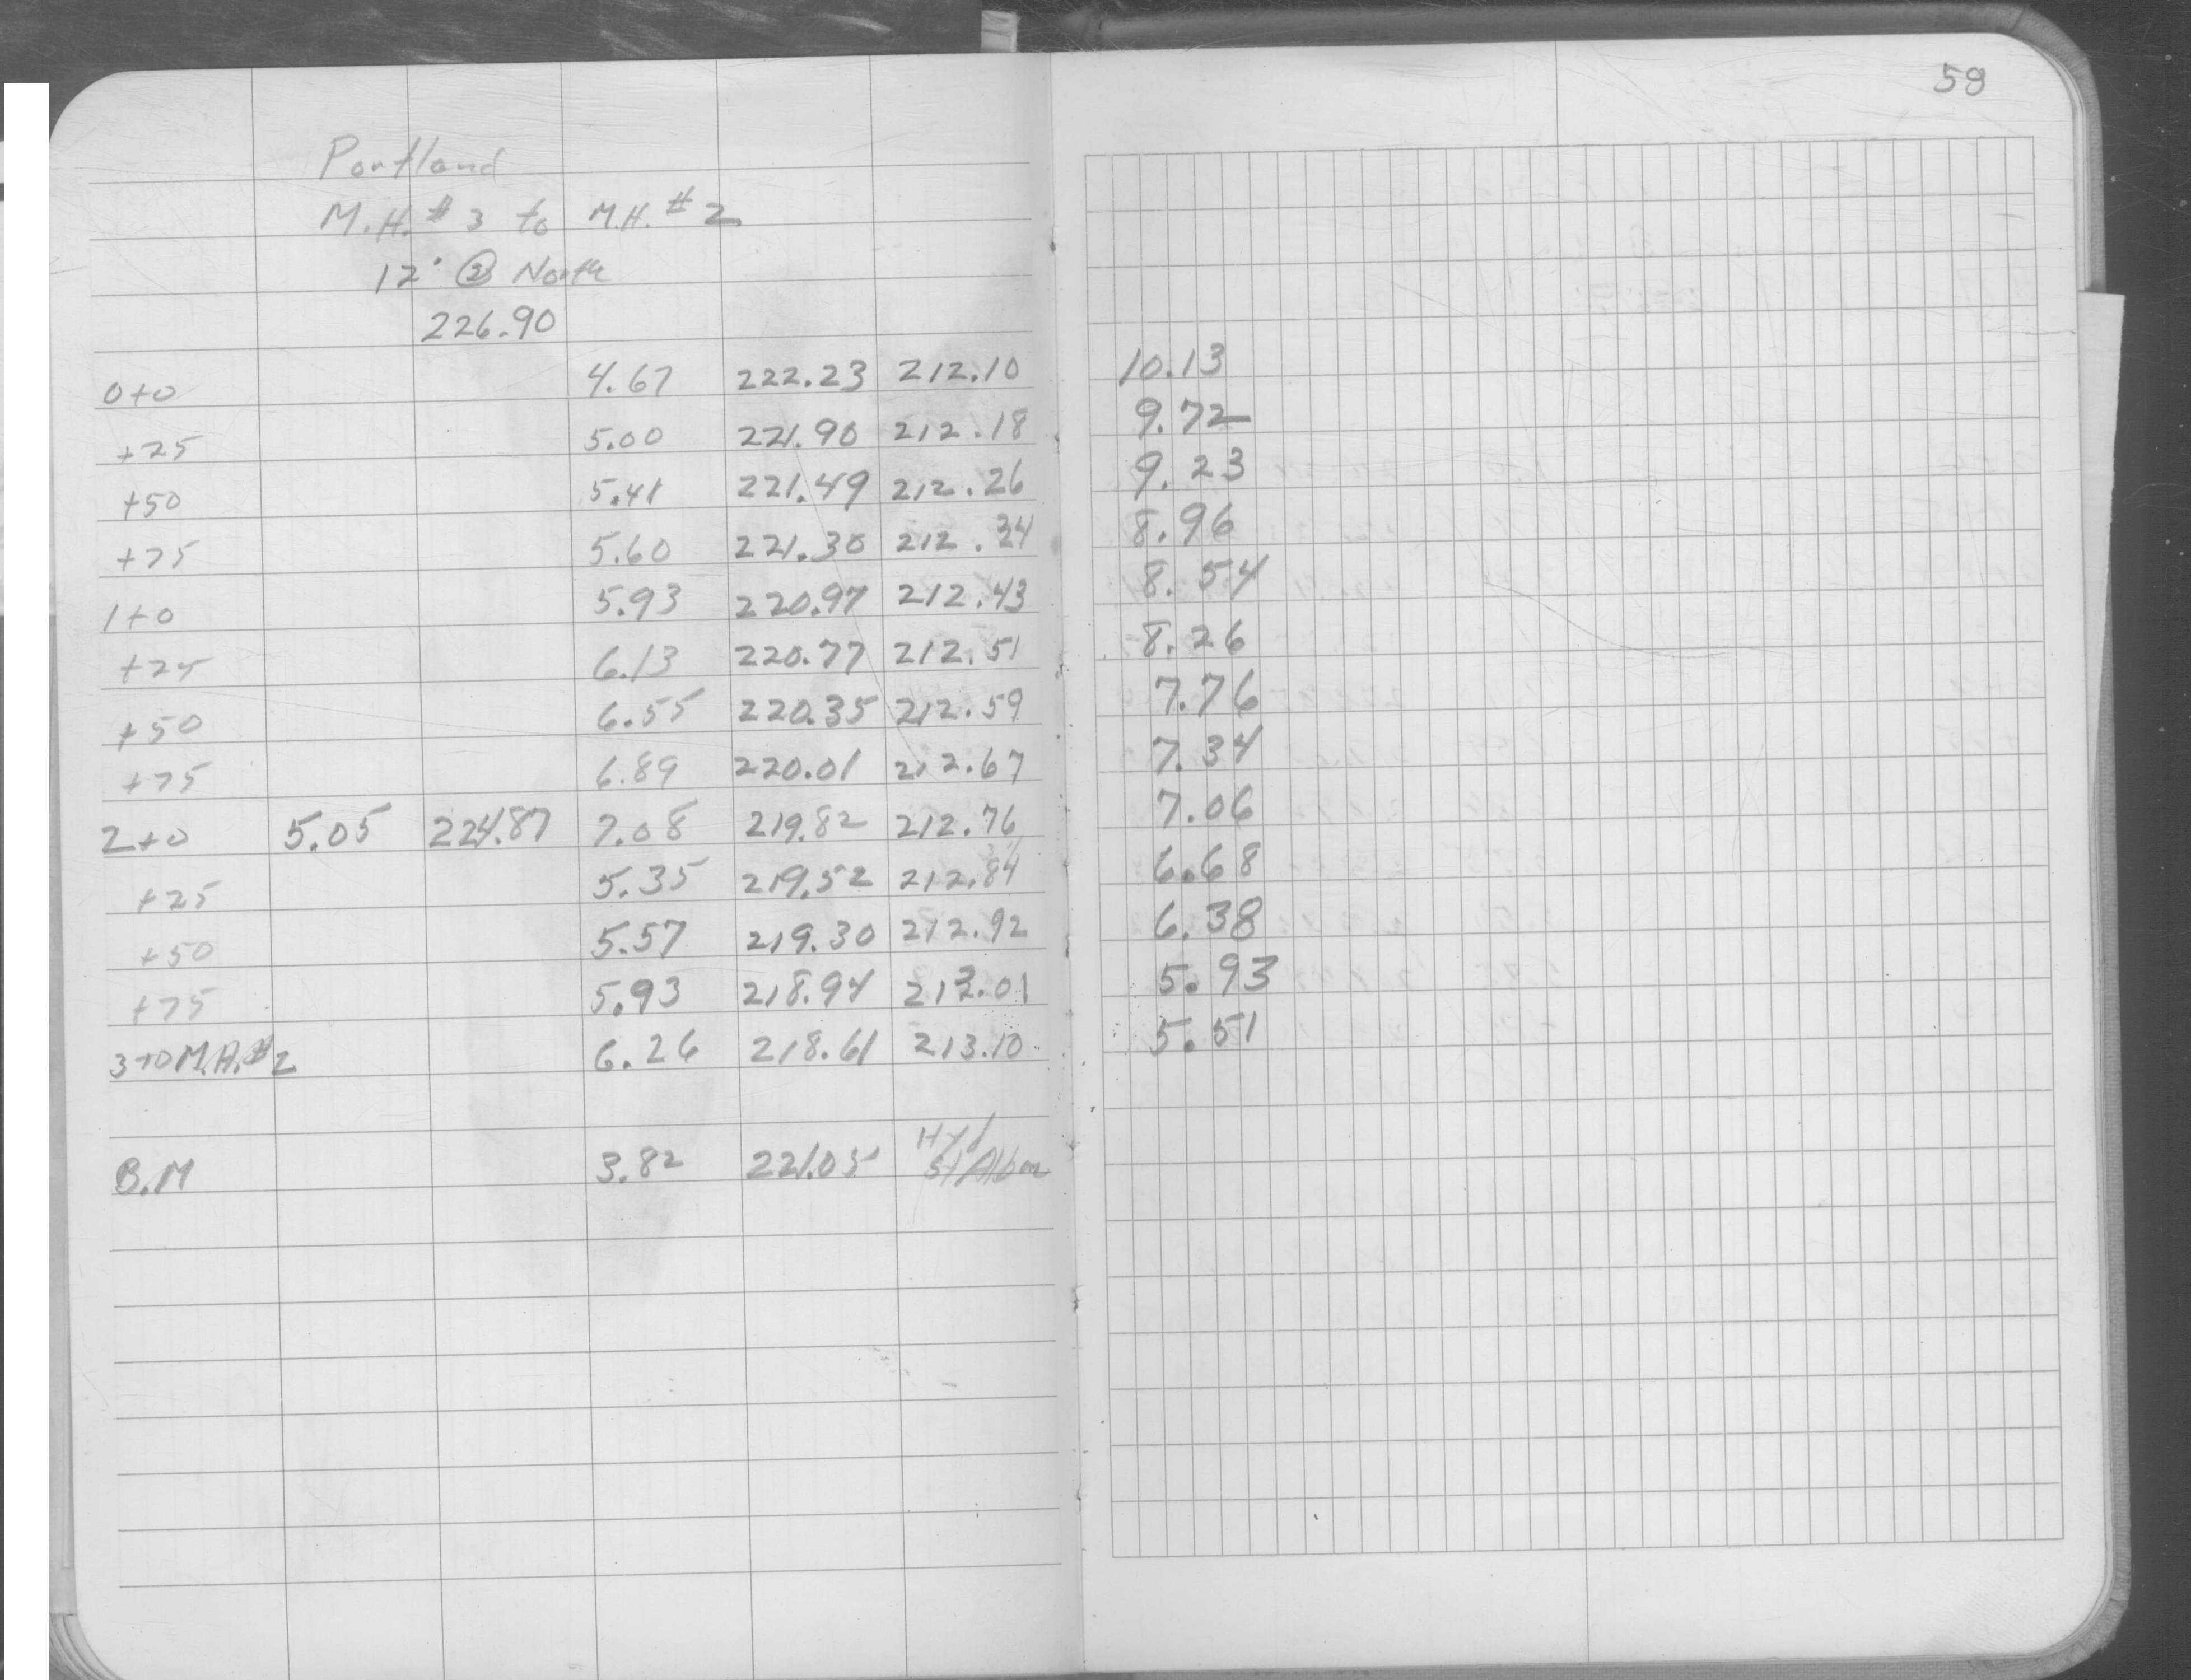 58
Portland
M.H. # 3 to M.H. # 2
12' @ North
226.90
0+0 4.67 222.23 212.10 10.13
+25 5.00 221.90 212.18 9.72
+50 5.41 221.49 212.26 9.23
+75 5.60 221.30 212.34 8.96
1+0 5.93 220.97 212.43 8.54
+25 6.13 220.77 212.51 8.26
+50 6.55 220.35 212.59 7.76
+75 6.89 220.01 212.67 7.34
2+0 5.05 224.87 7.08 219.82 212.76 7.06
+25 5.35 219.52 212.84 6.68
+50 5.57 219.30 212.92 6.38
+75 5.93 218.94 213.01 5.93
3+0 M.H.#2 6.26 218.61 213.10 5.51
B.M 3.82 221.05 Hyd
St Alban